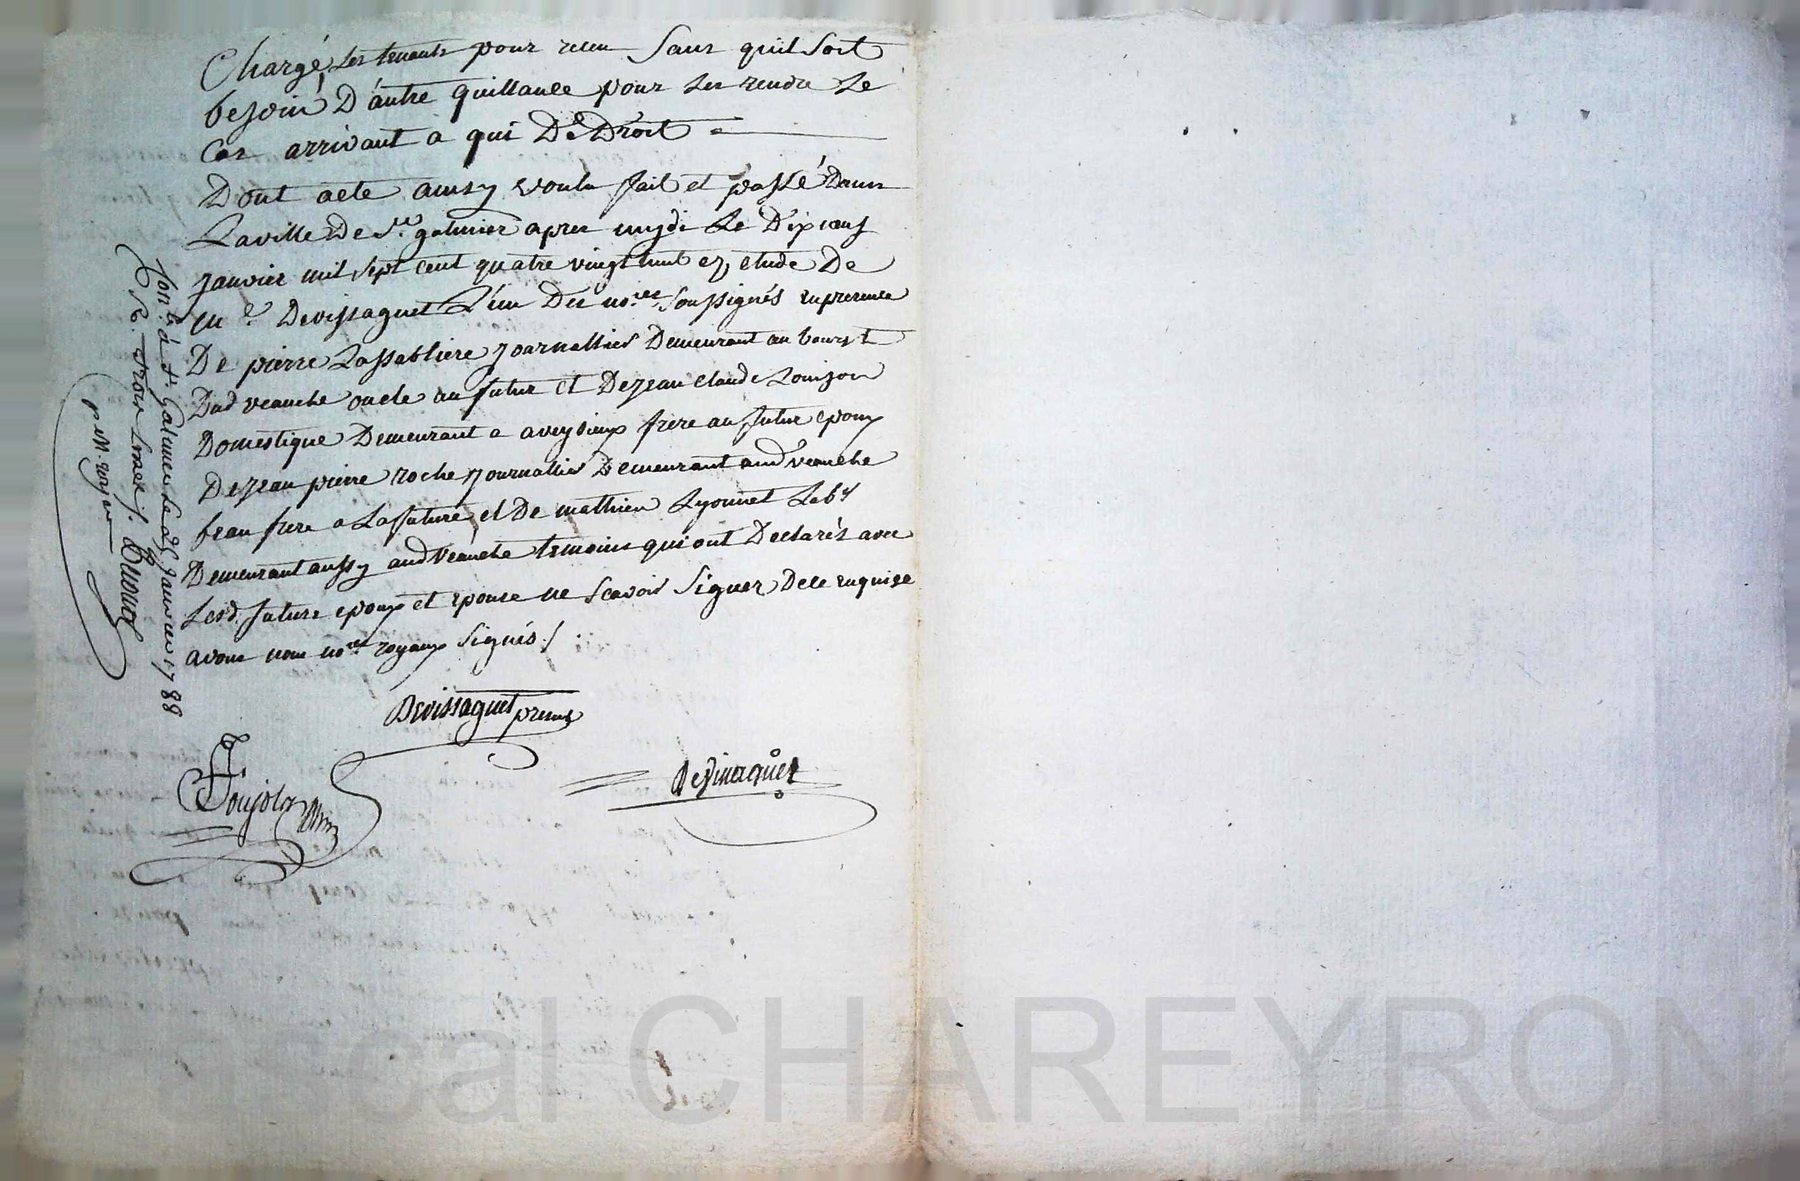 Chargé les tenants pour recu sans quil soit
besoin D'autre quittance pour les rendre Le
Cas arrivant a qui De Droit
Dont acte ainsy voulu fait et passé Dans
La ville De St. galmier apres mydi Le Dix neuf
janvier mil sept cent quatre vingt huit ez etude De
Me. Devissaguet L'un Des nores. soussignés en presence
De pierre Lassabliere journallier Demeurant au bourg
Dud veauche oncle au futur et De jean Claude Louison
Domestique Demeurant a aveyzieux frere au futur epoux
De jean pierre roche journallier Demeurant aud veauche
beau frere a La future et De mathieu Lyonnet
Demeurant aussy aud Veauche temoins qui ont Declarés avec
Lesd. future epoux et epouse ne scavoir signer De ce enquis
avons nous nores royaux signés
Devissaguet
Desimaguet
Conlé à St. Galmier le 25 janvier 1788
p. M. royer
Pascal CHAREYRON